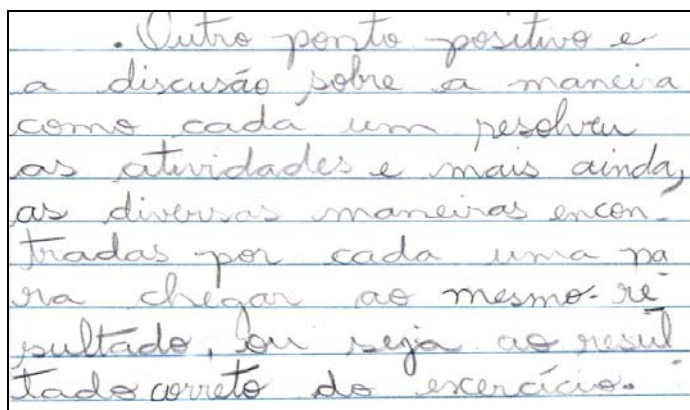 . Outro ponto positivo e
a discusão sobre a maneira
como cada um resolveu
as atividades e mais ainda,
as diversas maneiras encon-
tradas por cada uma pa
ra chegar ao mesmo re
sultado, ou seja ao resul
tado correto do exercício.